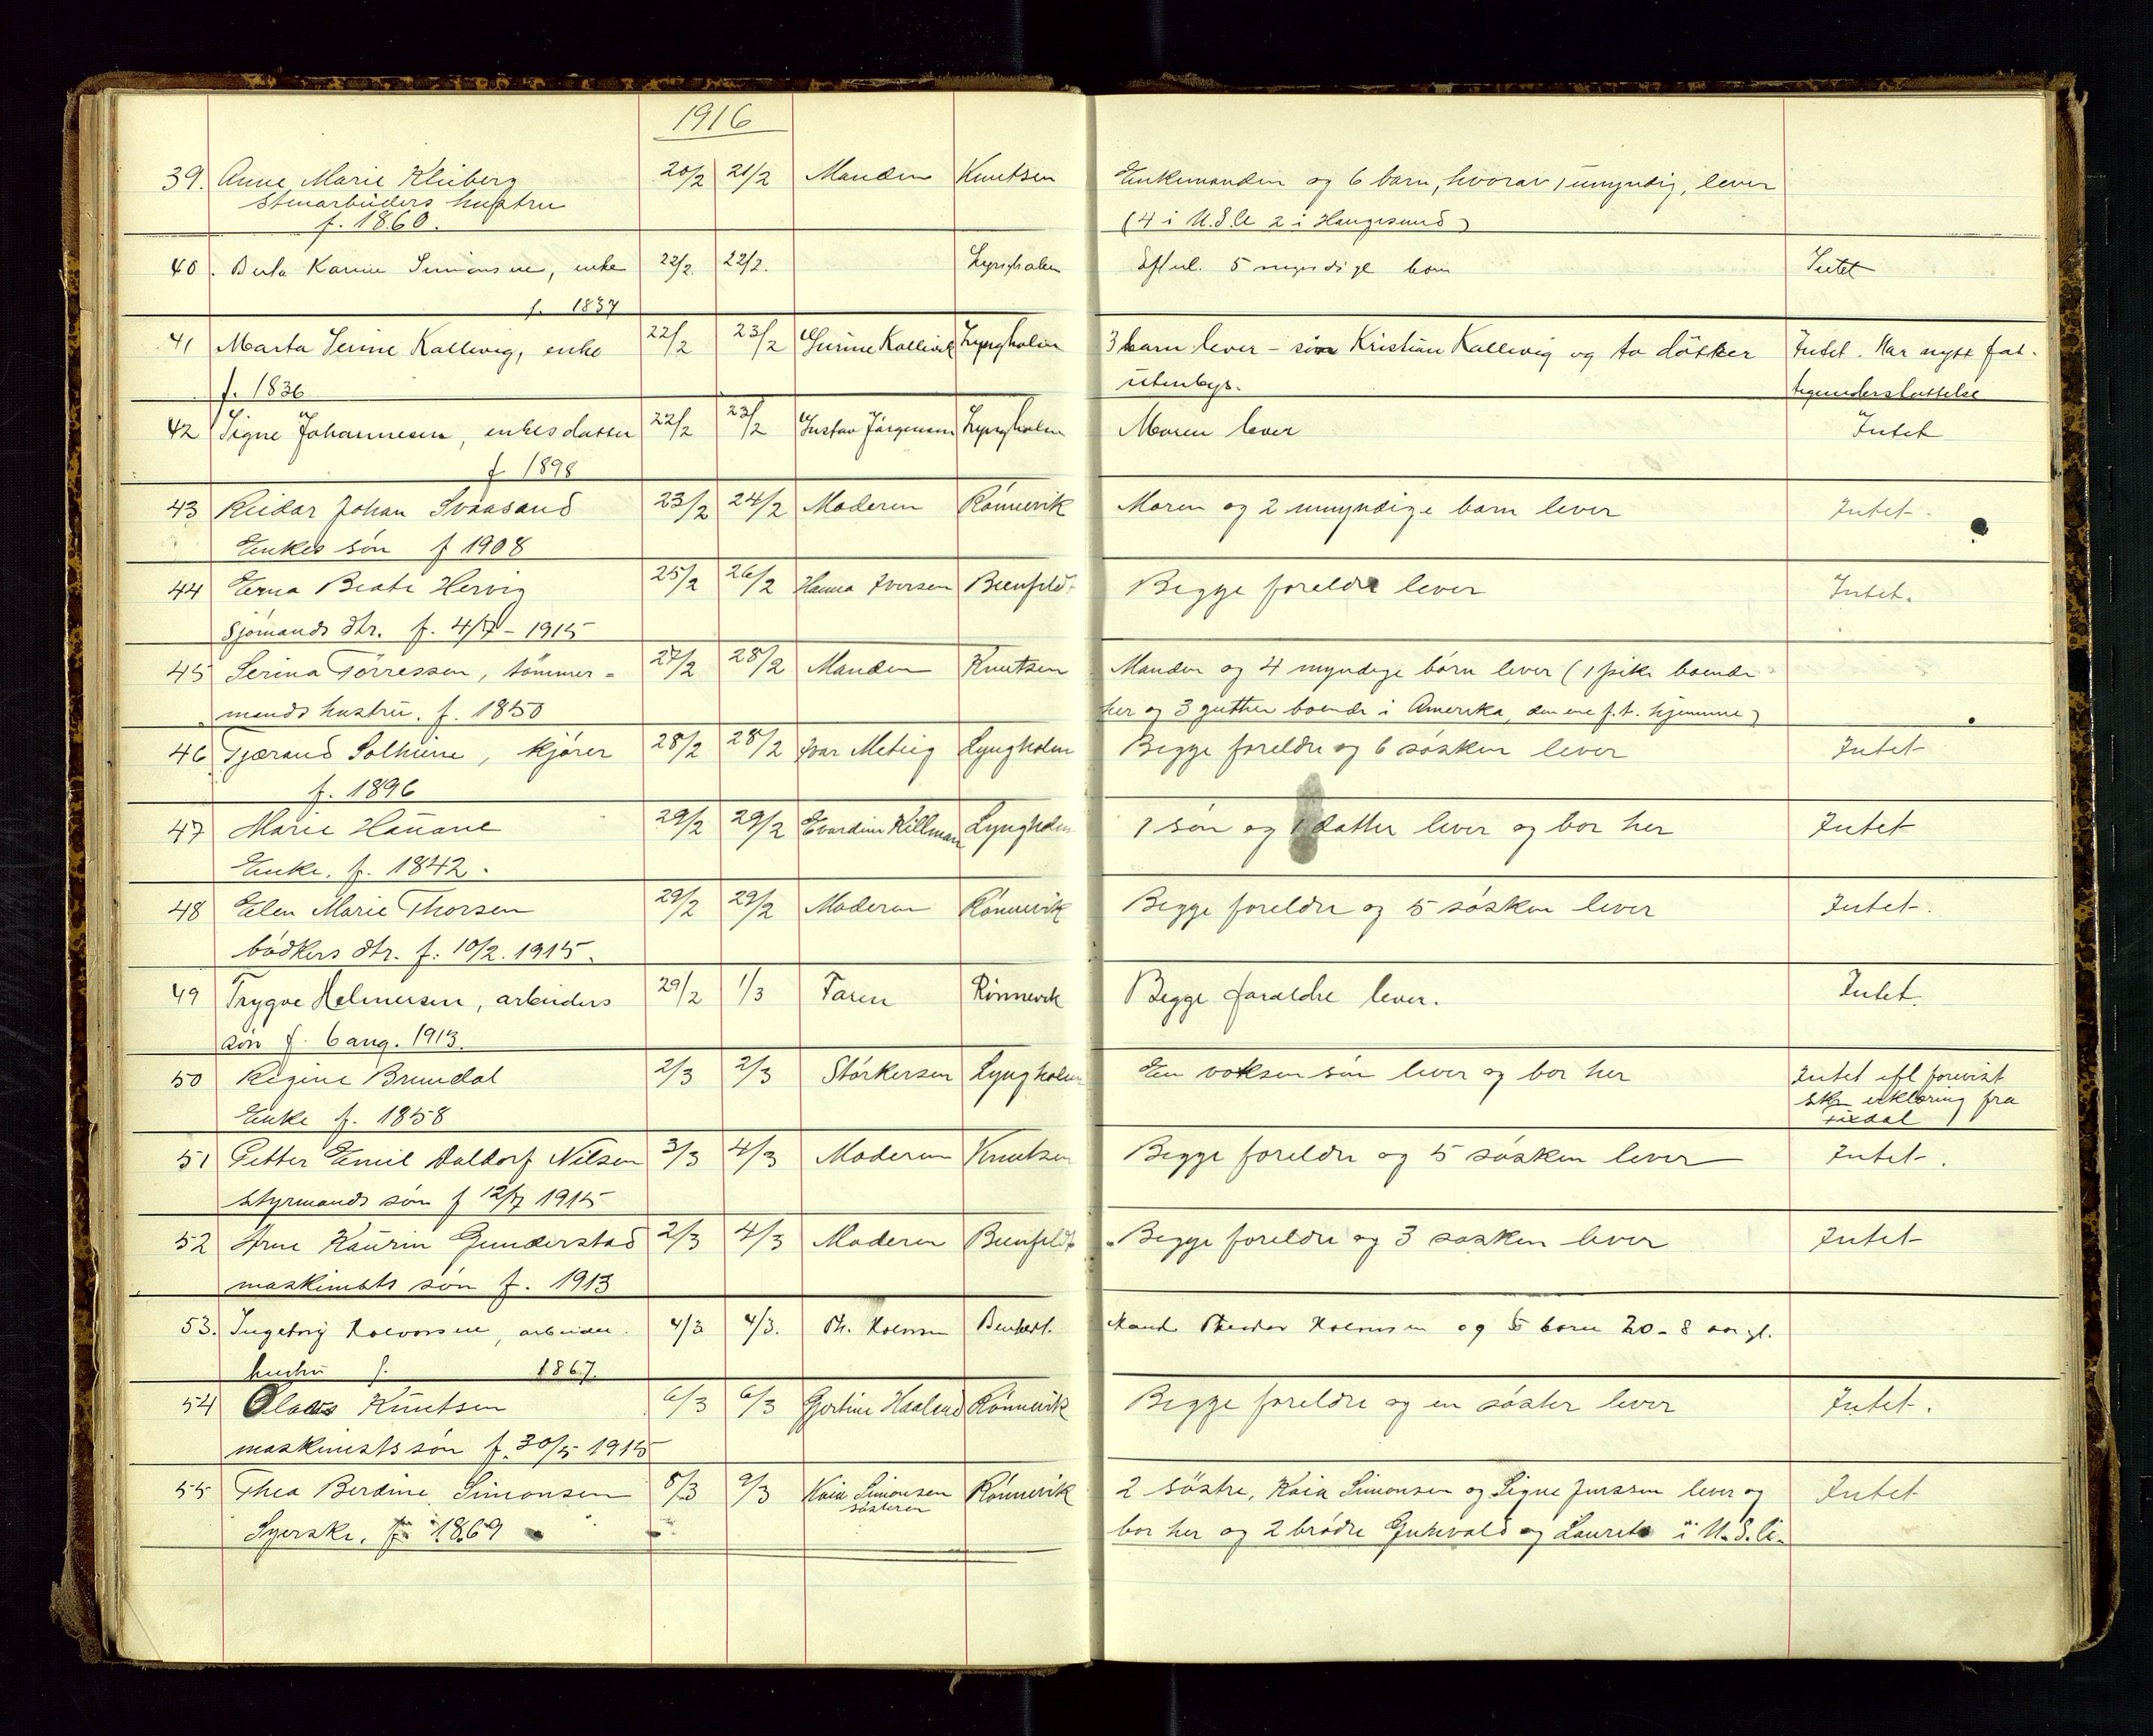 1916
39. Anne Marie Kleiberg 20/2 21/2 Manden Knutsen Enkemanden og 6 barn, hvorav 1 umyndig, lever
stenarbeiders hustru (4 i U.S.A 2 i Haugesund)
f. 1860.
40. Berta Karine Simonsen, enke 22/2. 22/2. Lyngholm Efterl. 5 myndige barn Intet
f. 1837
41 Marta Serine Kallevig, enke 22/2 23/2 Gurine Kallevik Lyngholm 3 barn lever - søn Kristian Kallevig og to døtre Intet. Har nytt fat-
f. 1836 utenbys. tigunderstøttelse
42 Signe Johannesen, enkes datter 22/2 23/2 Gustav Jørgensen Lyngholm Moren lever Intet
f 1898
43 Reidar Johan Svaasand 23/2 24/2 Moderen Rønnevik Moren og 2 umyndige barn lever Intet.
Enkes søn f 1908
44 Erna Beate Hervig 25/2 26/2 Hanna Iversen Bienfeldt Begge foreldre lever Intet.
Sjømands dtr. f. 4/7 - 1915
45 Serina Tørressen, tømmer- 27/2 28/2 Manden Knutsen Manden og 4 myndige børn lever (1 pike boende
mands hustru. f. 1850 her og 3 gutter boende i Amerika, den ene f.t. hjemme)
46 Tjærand Solheim, kjører 28/2 28/2 Ivar Meling Lyngholm Begge foreldre og 6 søsken lever Intet
f. 1896
47 Marie Haavare 29/2 29/2 Evardine Killman Lyngholm 1 søn og 1 datter lever og bor her Intet
Enke. f. 1842.
48 Elen Marie Thorsen 29/2 29/2 Moderen Rønnevik Begge foreldre og 5 søsken lever Intet.
bødkers dtr. f. 10/2. 1915.
49 Trygve Helmersen, arbeiders 29/2 1/3 Faren Rønnevik Begge foreldre lever. Intet.
søn f. 6 aug. 1913.
50 Regine Brundal 2/3 2/3 Størkersen Lyngholm En voksen søn lever og bor her Intet efl forevist
Enke f. 1858 skr erklæring fra
51 Petter Emil Daldorf Nilsen 3/3 4/3 Moderen Knutsen Begge foreldre og 5 søsken lever Intet.
styrmands søn f 12/7 1915
52 Arne Kaurin Gunderstad 2/3 4/3 Moderen Bienfeldt Begge foreldre og 3 søsken lever Intet
maskinists søn f. 1913
53. Ingeborg Halvorsen, arbeider. 4/3 4/3. Th. Halvorsen Bienfeldt. Mand Theodor Halvorsen og 5 barn 20-8 aar gl.
hustru f. 1867.
54 Olaus Knutsen 6/3 6/3 Gjertine Haaland Rønnevik Begge foreldre og en søster lever Intet.
maskinists søn f. 30/5 1915
55 Thea Berdine Simonsen 8/3 9/3 Kaia Simonsen Rønnevik 2 søstre, Kaia Simonsen og Signe Jurssen lever og Intet
søsteren
Syerske, f. 1869 bor her og 2 brødre Gunvald og Laurits i U.S.A.